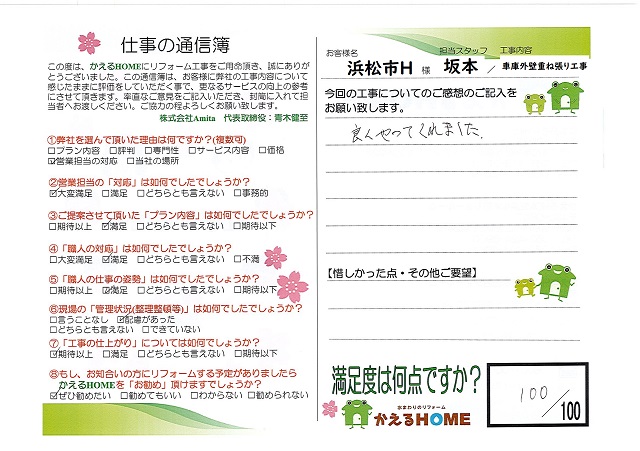 仕事の通信簿
この度は、かえるHOMEにリフォーム工事をご用命頂き、誠にありが
とうございました。この通信簿は、お客様に弊社の工事内容について
感じたままに評価をしていただく事で、更なるサービスの向上の参考
にさせて頂きます。率直なご意見をご記入いただき、封筒に入れて担当
者へお渡しください。ご協力の程よろしくお願い致します。
株式会社Amita 代表取締役：青木健至
①弊社を選んで頂いた理由は何ですか?(複数可)
□プラン内容 □評判 □専門性 □サービス内容 □価格
☑営業担当の対応 □当社の場所
②営業担当の「対応」は如何でしたでしょうか?
☑大変満足 □満足 □どちらとも言えない □事務的
③ご提案させて頂いた「プラン内容」は如何でしたでしょうか?
□期待以上 ☑満足 □どちらとも言えない □期待以下
④「職人の対応」は如何でしたでしょうか?
□大変満足 ☑満足 □どちらとも言えない □不満
⑤「職人の仕事の姿勢」は如何でしたでしょうか?
□期待以上 ☑満足 □どちらとも言えない □期待以下
⑥現場の「管理状況(整理整頓等)」は如何でしたでしょうか?
□言うことなし ☑配慮があった
□どちらとも言えない □できていない
⑦「工事の仕上がり」については如何でしょうか?
☑期待以上 □満足 □どちらとも言えない □期待以下
⑧もし、お知合いの方にリフォームする予定がありましたら
かえるHOMEを「お勧め」頂けますでしょうか?
☑ぜひ勧めたい □勧めてもいい □わからない □勧められない
お客様名 担当スタッフ 工事内容
浜松市H 様 坂本 / 車庫外壁重ね張り工事
今回の工事についてのご感想のご記入を
お願い致します。
良くやってくれました。
【惜しかった点・その他ご要望】
満足度は何点ですか?
100/100
水まわりのリフォーム
かえるHOME